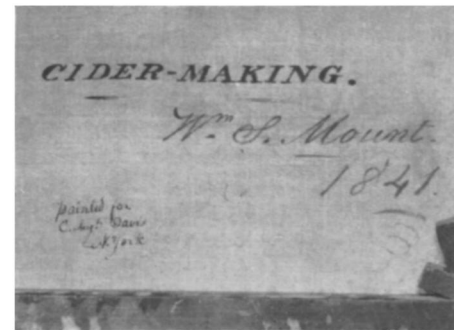 CIDER-MAKING.
Wm S. Mount.
1841.
painted for
C. Augts Davis
N York